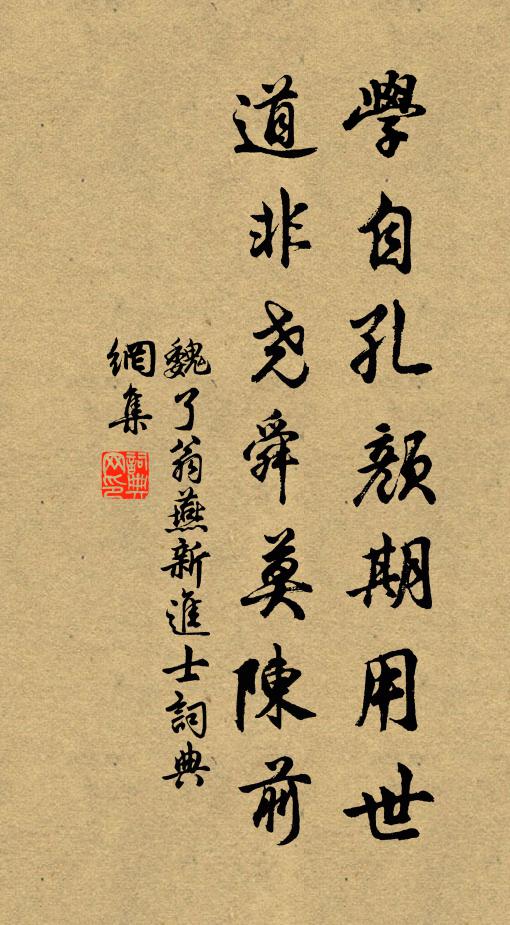 學自孔顏期用世
道非堯舜莫陳前
魏了翁燕新進士詞典
網集
詞典
网印